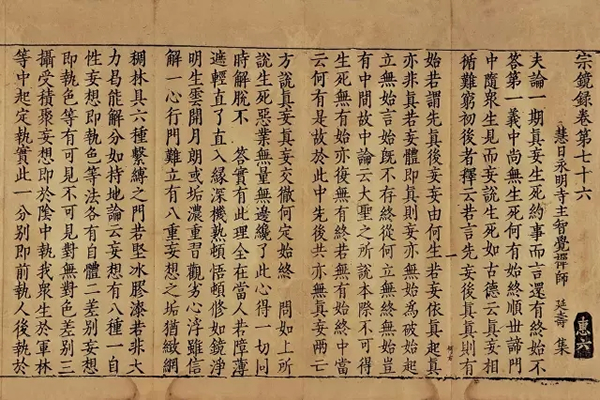 宗鏡錄卷第七十六
惠六
慧日永明寺主智覺禪師 延壽 集
夫論一期真妄生死約事而言還有終始不
答第一義中尚無生死何有始終順世諦門
中隨眾生見而妄說生死如古德云真妄相
循難窮初後者釋云若言先妄後真真則有
始若謂先真後妄妄由何生若妄依真起真
亦非真若妄體即真則妄亦無始為破始起
立無始言始既不存終從何立無終無始豈
有中間故中論云大聖之所說本際不可得
生死無有始亦復無有終若無有始終中當
云何有是故於此中先後共亦無真妄兩亡
方說真妄真妄交徹何定始終 問如上所
說生死惡業無量無邊纔了此心得一切同
時解脫不 答實有此理全在當人若障薄
遮輕直了直入緣深機熟頓悟頓修如鏡淨
明生雲開月朗或垢濃重習觀劣心浮雖信
解一心行門難立有八重妄想之垢猶緻網
稠林具六種繫縛之門若堅冰膠漆若非大
力曷能解分如持地論云妄想有八種一自
性妄想即執色等法各有自體二差別妄想
即執色等有可見不可見對無對色差別三
攝受積聚妄想即於陰中執我眾生於軍林
等中起定執實此一分別即前執人後執於